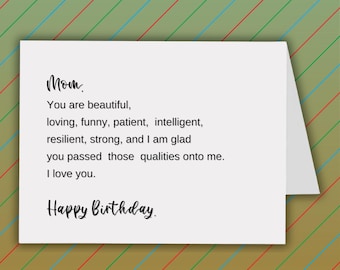 Mom,
You are beautiful,
loving, funny, patient, intelligent,
resilient, strong, and I am glad
you passed those qualities onto me.
I love you.
Happy Birthday,